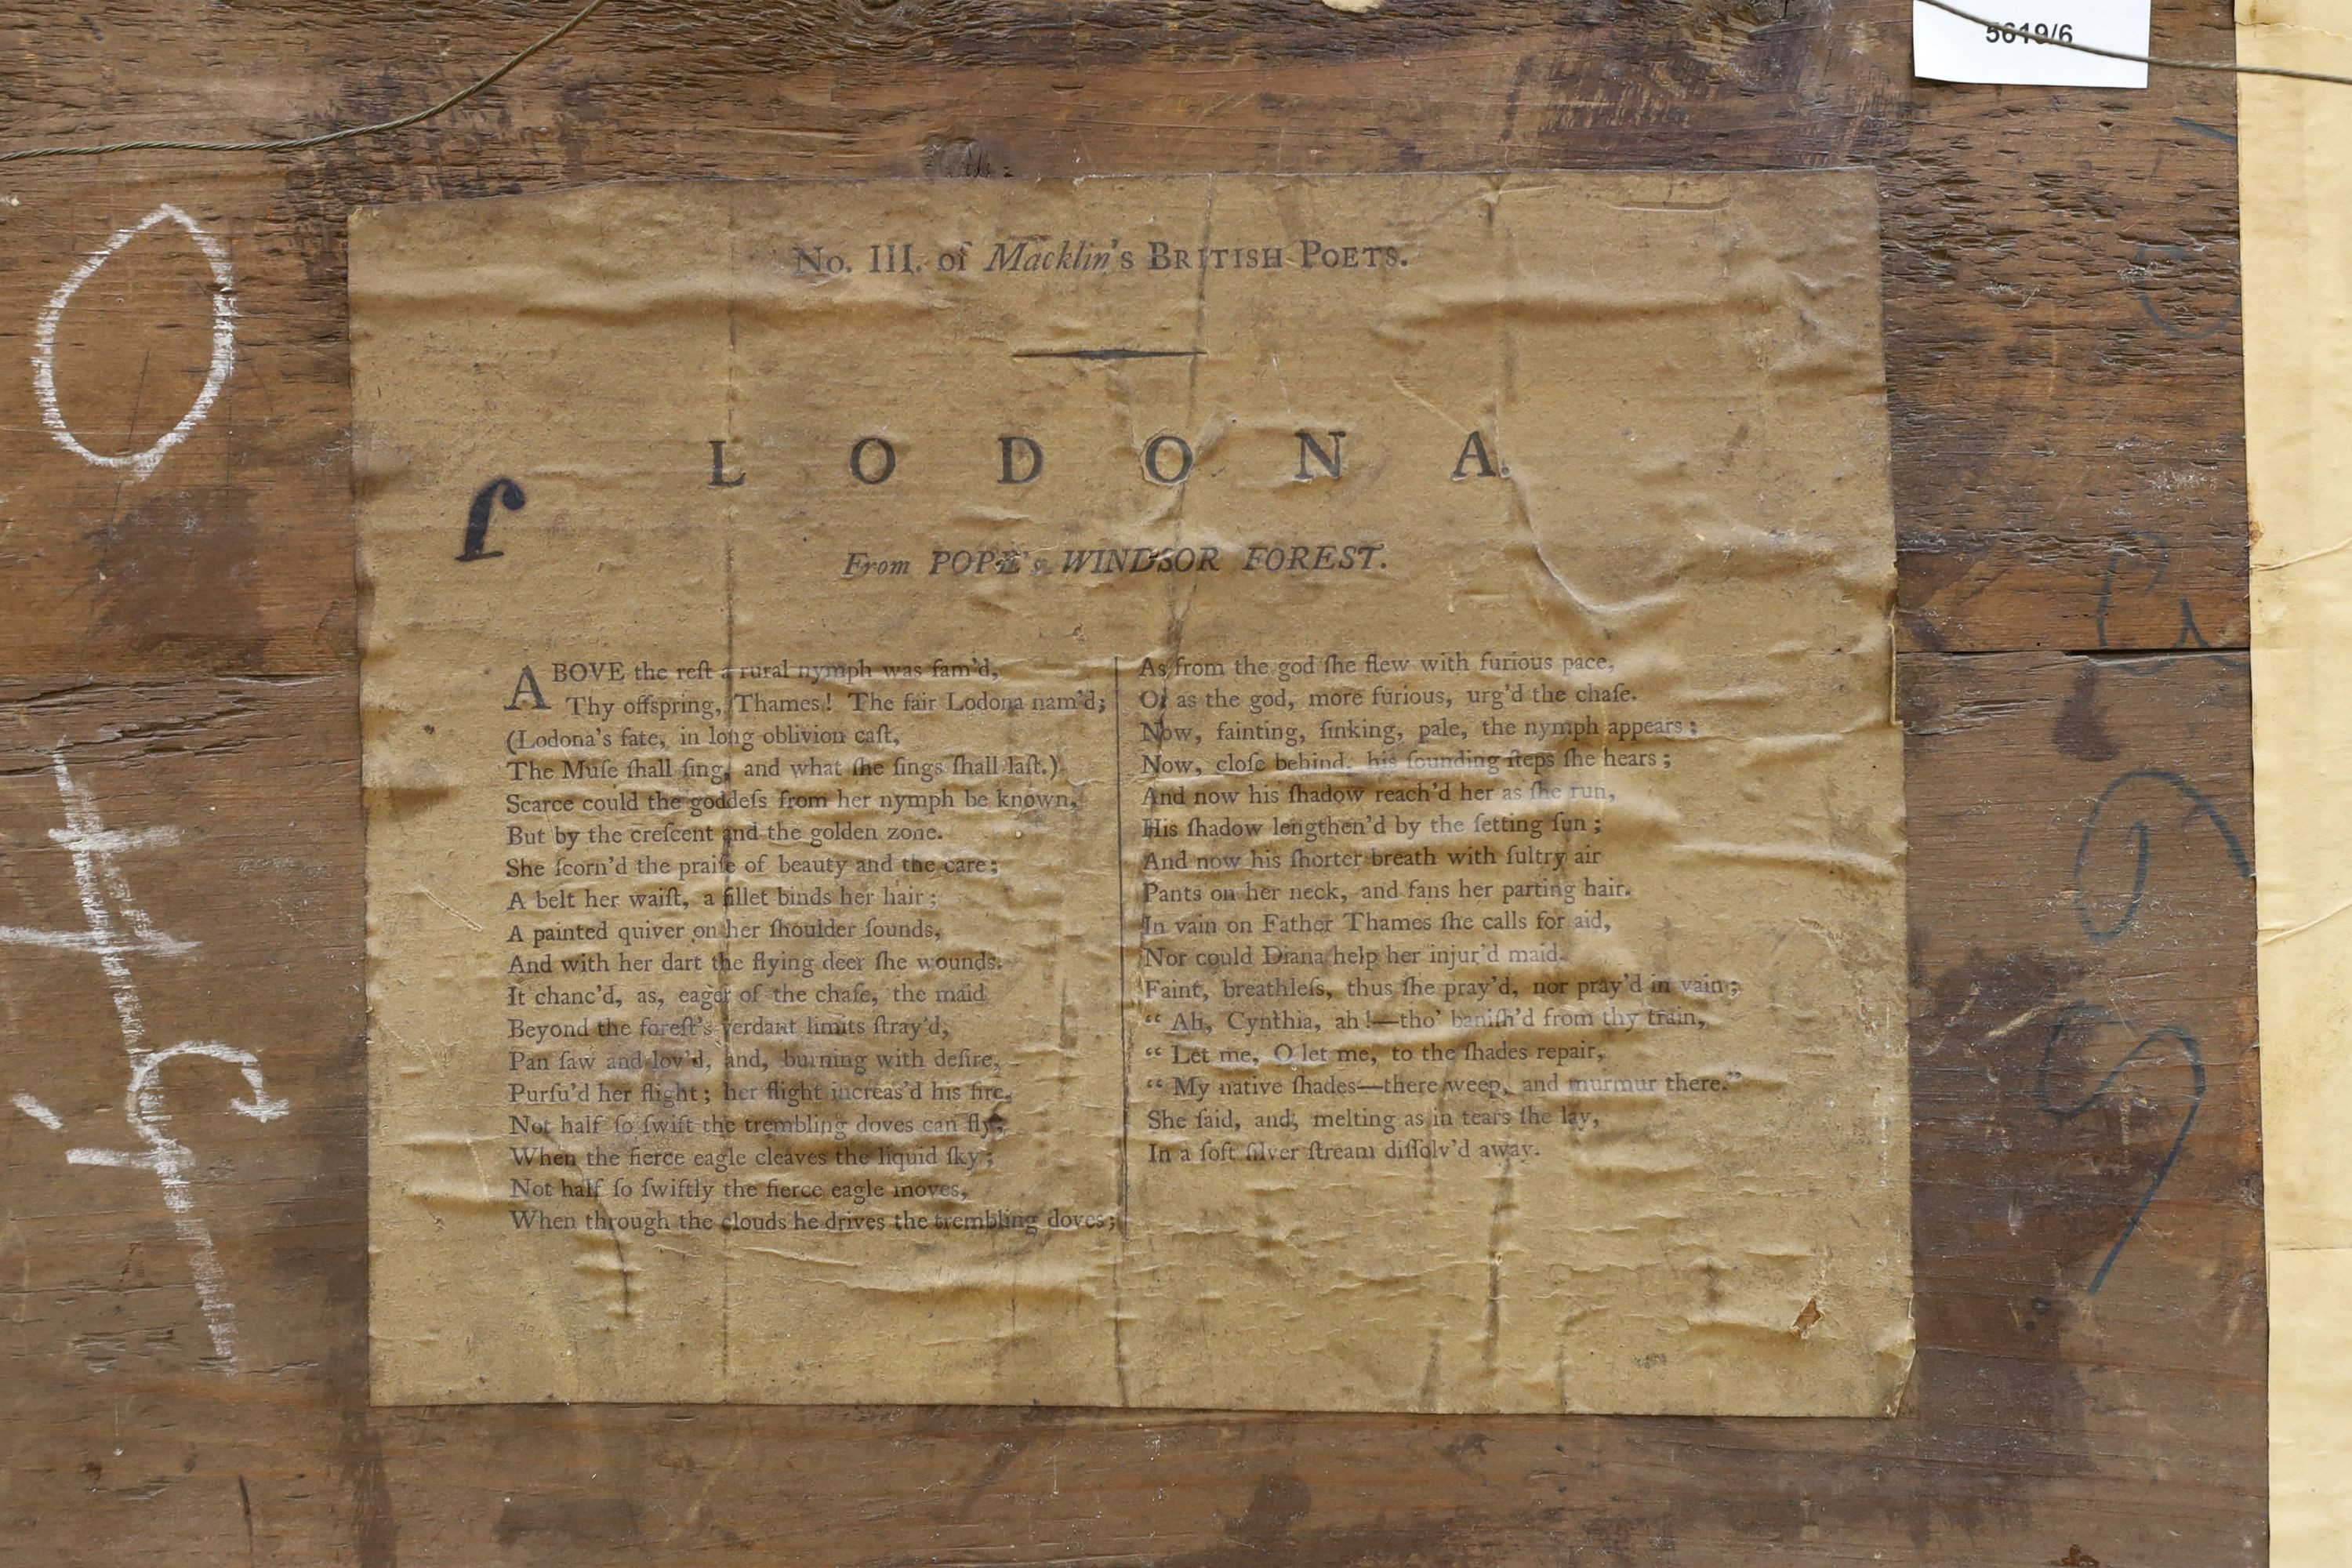 5619/6
No. III. of Macklin's BRITISH POETS.
LODONA.
From POPE's WINDSOR FOREST.
ABOVE the reſt a rural nymph was fam'd,
Thy offspring, Thames! The fair Lodona nam'd;
(Lodona's fate, in long oblivion caſt,
The Muſe ſhall ſing, and what ſhe ſings ſhall laſt.)
Scarce could the goddeſs from her nymph be known,
But by the creſcent and the golden zone.
She ſcorn'd the praiſe of beauty and the care;
A belt her waiſt, a fillet binds her hair;
A painted quiver on her ſhoulder ſounds,
And with her dart the flying deer ſhe wounds.
It chanc'd, as, eager of the chaſe, the maid
Beyond the foreſt's verdant limits ſtray'd,
Pan ſaw and lov'd, and, burning with deſire,
Purſu'd her flight; her flight increas'd his fire.
Not half ſo ſwift the trembling doves can fly,
When the fierce eagle cleaves the liquid ſky;
Not half ſo ſwiftly the fierce eagle moves,
When through the clouds he drives the trembling doves;
As from the god ſhe flew with furious pace,
Or as the god, more furious, urg'd the chaſe.
Now, fainting, ſinking, pale, the nymph appears;
Now, cloſe behind, his ſounding ſteps ſhe hears;
And now his ſhadow reach'd her as ſhe run,
His ſhadow lengthen'd by the ſetting ſun;
And now his ſhorter breath with ſultry air
Pants on her neck, and fans her parting hair.
In vain on Father Thames ſhe calls for aid,
Nor could Diana help her injur'd maid.
Faint, breathleſs, thus ſhe pray'd, nor pray'd in vain;
“ Ah, Cynthia, ah!—tho' baniſh'd from thy train,
“ Let me, O let me, to the ſhades repair,
“ My native ſhades—there weep, and murmur there.”
She ſaid, and, melting as in tears ſhe lay,
In a ſoft ſilver ſtream diſſolv'd away.